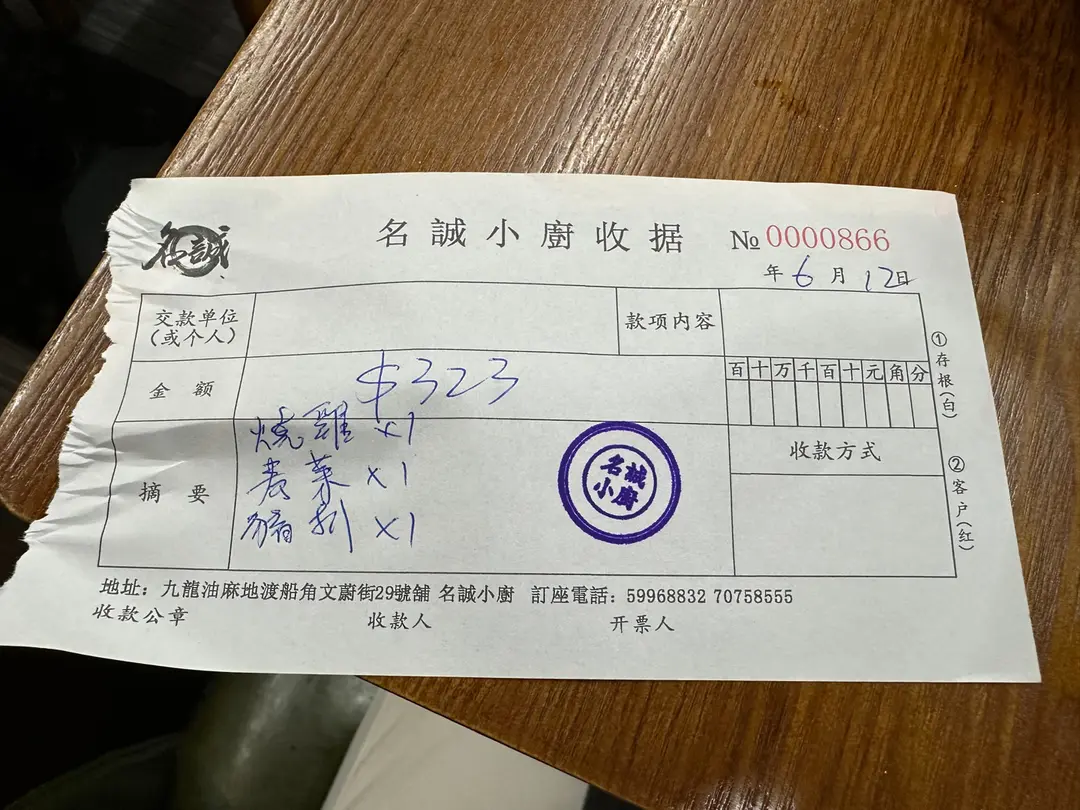 名誠
名誠小廚收据
№ 0000866
年 6 月 12日
交款单位
(或个人)
款项内容
金 额
$323
百 十 万 千 百 十 元 角 分
摘 要
燒雞 x1
表菜 x1
豬扒 x1
名誠
小廚
收款方式
①存根(白)
②客户(红)
地址：九龍油麻地渡船角文蔚街29號舖 名誠小廚 訂座電話：59968832 70758555
收款公章
收款人
开票人